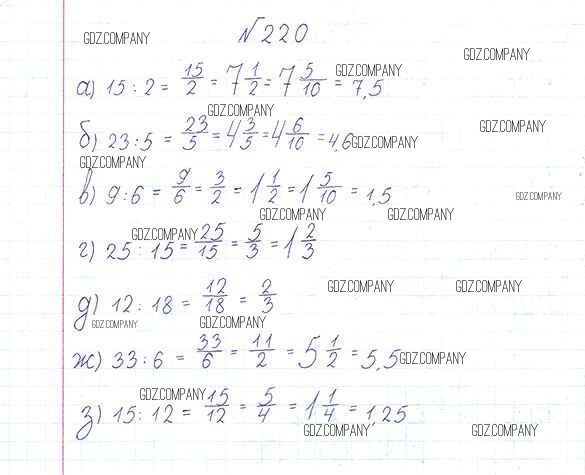 №220
GDZ.COMPANY
GDZ.COMPANY
GDZ.COMPANY
а) 15 : 2 = 15/2 = 7 1/2 = 7 5/10 = 7,5
GDZ.COMPANY
GDZ.COMPANY
б) 23 : 5 = 23/5 = 4 3/5 = 4 6/10 = 4,6
GDZ.COMPANY
GDZ.COMPANY
в) 9 : 6 = 9/6 = 3/2 = 1 1/2 = 1 5/10 = 1,5
GDZ.COMPANY
GDZ.COMPANY GDZ.COMPANY
GDZ.COMPANY
г) 25 : 15 = 25/15 = 5/3 = 1 2/3
GDZ.COMPANY GDZ.COMPANY
д) 12 : 18 = 12/18 = 2/3
GDZ.COMPANY GDZ.COMPANY
ж) 33 : 6 = 33/6 = 11/2 = 5 1/2 = 5,5
GDZ.COMPANY
GDZ.COMPANY
з) 15 : 12 = 15/12 = 5/4 = 1 1/4 = 1,25
GDZ.COMPANY GDZ.COMPANY